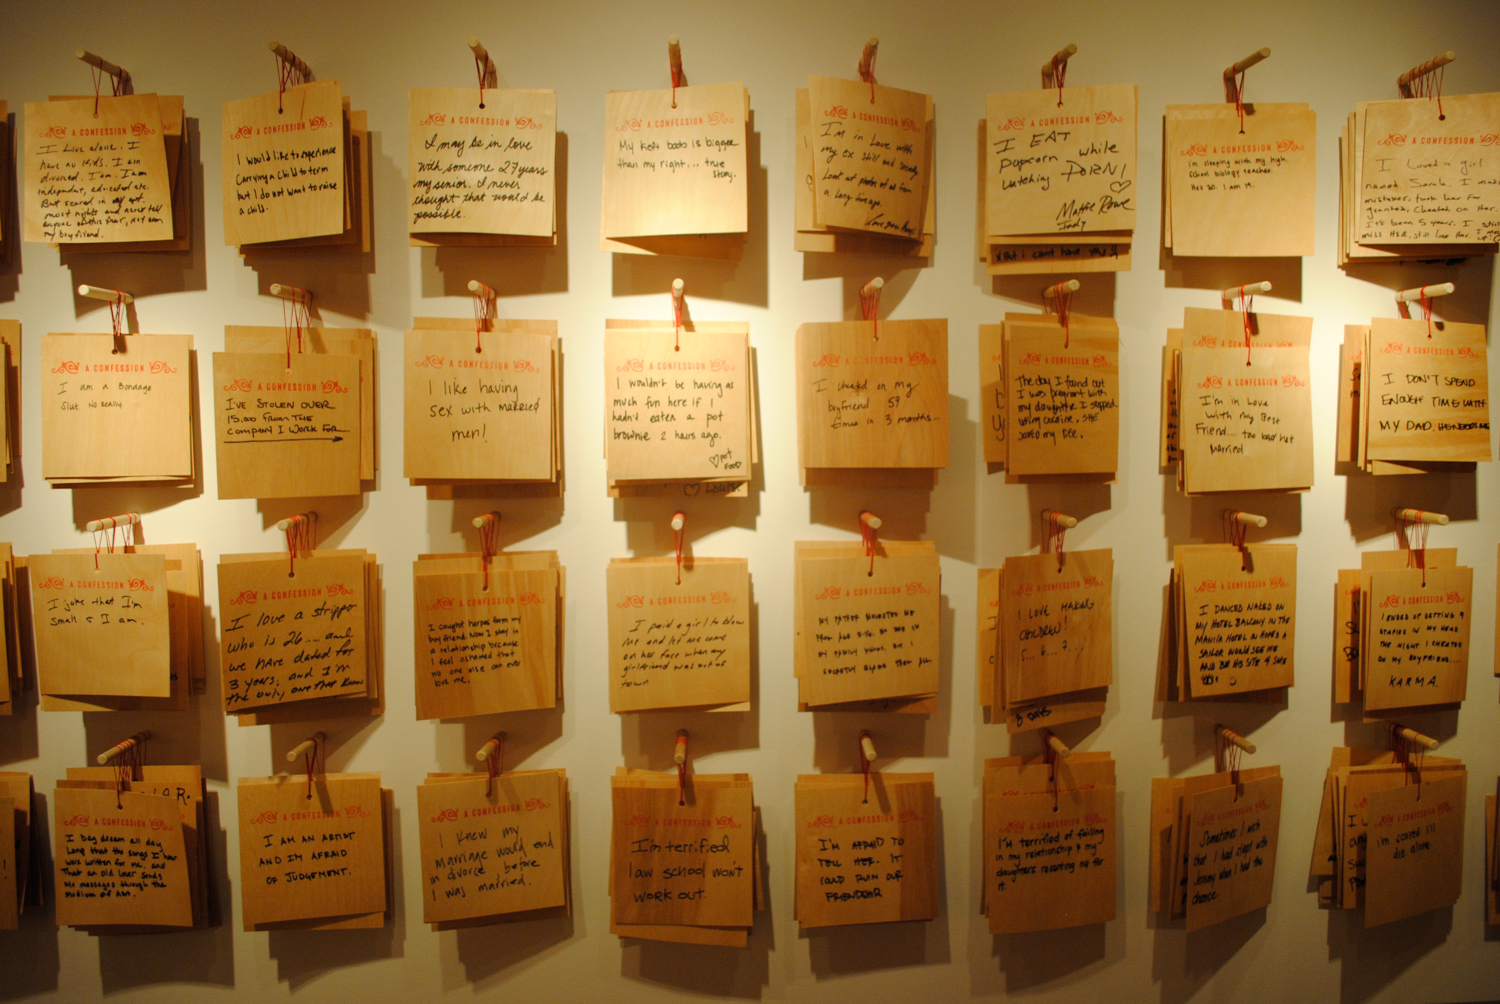 A CONFESSION
I live alone. I
have no kids. I am
divorced. I am. I am
independent, educated etc.
But scared in
most nights and never tell
anyone of this fear, not even
my boyfriend.
A CONFESSION
I would like to experience
Carrying a child to term
but I do not want to raise
a child.
A CONFESSION
I may be in love
with someone 27 years
my senior. I never
thought that would be
possible.
A CONFESSION
My left boob is bigger
than my right... true
story.
A CONFESSION
I'm in love with
my ex still and
Look at photos of us from
a long time ago.
A CONFESSION
I EAT
popcorn while
watching PORN!
Mattie Rowe
Indy
but i can't have you
A CONFESSION
im sleeping with my high
school biology teacher.
Hes 30. I am 19.
A CONFESSION
I loved a girl
named Sarah. I made
mistakes. took her for
granted, cheated on her.
It's been 5 years. I still
miss HER, still love her. I
A CONFESSION
I am a Bondage
Slut. No really.
A CONFESSION
I'VE STOLEN OVER
15,000 FROM THE
COMPANY I WORK FOR
A CONFESSION
I like having
sex with married
men!
A CONFESSION
I wouldn't be having as
much fun here if I
hadn't eaten a pot
brownie 2 hours ago.
pot
food
Louise
A CONFESSION
I cheated on my
boyfriend 59
times in 3 months...
A CONFESSION
The day I found out
I was pregnant with
my daughter I stopped
using cocaine. She
saved my life.
A CONFESSION
I'm in Love
With my Best
Friend... too bad hes
Married
A CONFESSION
I DON'T SPEND
ENOUGH TIME WITH
MY DAD. HE NEEDS ME
A CONFESSION
I joke that I'm
small & I am.
A CONFESSION
I love a stripper
who is 26.... and
we have dated for
3 years, and I'm
the only one that knows
A CONFESSION
I caught herpes from my
boyfriend. Now I stay in
a relationship because
I feel ashamed that
no one else can ever
love me.
A CONFESSION
I paid a girl to blow
me and let me come
on her face when my
girlfriend was out of
town
A CONFESSION
MY FATHER MOLESTED ME
A CONFESSION
I LOVE MAKING
CHILDREN!
5... 6... 7...
8 DAYS
A CONFESSION
I DANCED NAKED ON
MY HOTEL BALCONY IN THE
MANILA HOTEL IN HOPES A
SAILOR WOULD SEE ME
AND
A CONFESSION
I ENDED UP GETTING 9
STAPLES IN MY HEAD
THE NIGHT I CHEATED
ON MY BOYFRIEND....
KARMA.
A CONFESSION
I Day dream all day
Long that the songs I hear
were written for me, and
That an old lover sends
Me messages through the
Medium of Art.
A CONFESSION
I AM AN ARTIST
AND I'M AFRAID
OF JUDGEMENT.
A CONFESSION
I knew my
marriage would end
in divorce before
I was married.
A CONFESSION
I'm terrified
law school won't
work out.
A CONFESSION
I'M AFRAID TO
TELL HER. IT
COULD RUIN OUR
A CONFESSION
I'm terrified of failing
in my relationship & my
daughters resenting me for
it.
A CONFESSION
Sometimes I wish
that I had slept with
Jeremy when I had the
chance.
A CONFESSION
im scared ill
die alone.